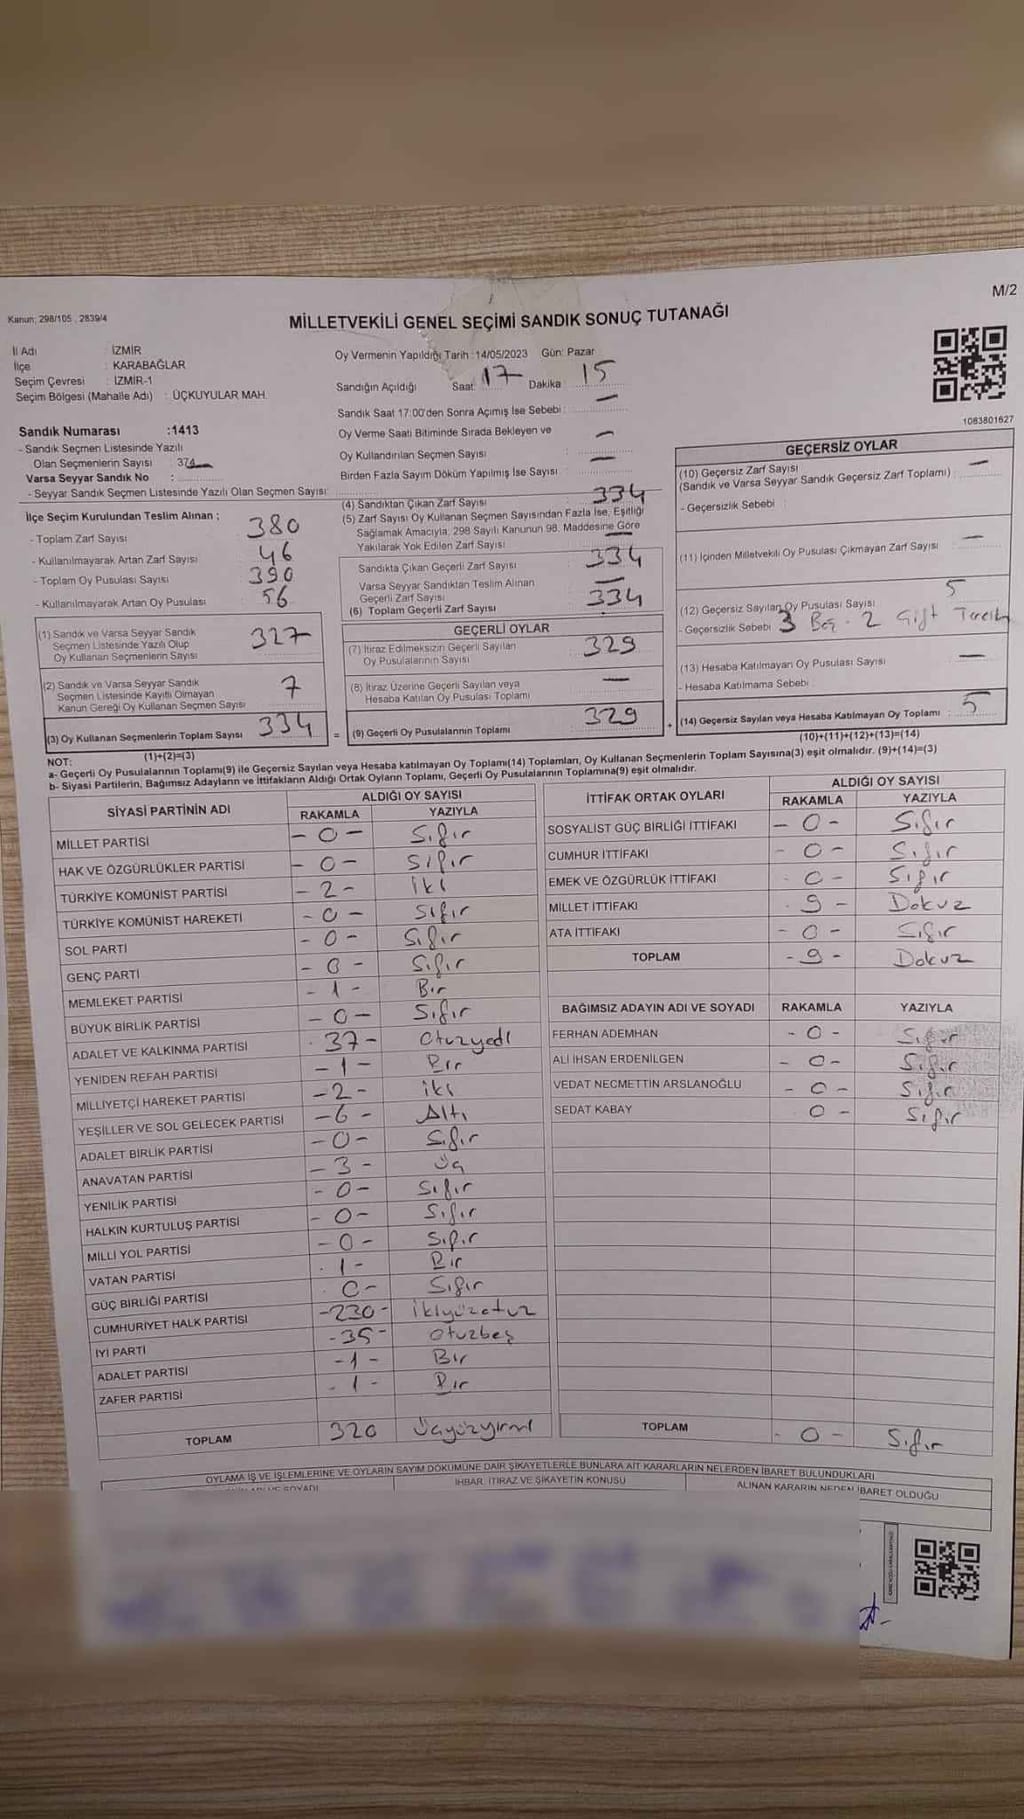 M/2
Kanun; 298/105 , 2839/4
MİLLETVEKİLİ GENEL SEÇİMİ SANDIK SONUÇ TUTANAĞI
İl Adı : İZMİR
İlçe : KARABAĞLAR
Seçim Çevresi : İZMİR-1
Seçim Bölgesi (Mahalle Adı) : ÜÇKUYULAR MAH.
Sandık Numarası :1413
- Sandık Seçmen Listesinde Yazılı
Olan Seçmenlerin Sayısı : 374
Varsa Seyyar Sandık No :
- Seyyar Sandık Seçmen Listesinde Yazılı Olan Seçmen Sayısı:
Oy Vermenin Yapıldığı Tarih :14/05/2023 Gün: Pazar
Sandığın Açıldığı Saat: 17 Dakika : 15
Sandık Saat 17:00'den Sonra Açımış İse Sebebi : —
Oy Verme Saati Bitiminde Sırada Bekleyen ve
Oy Kullandırılan Seçmen Sayısı : —
Birden Fazla Sayım Döküm Yapılmış İse Sayısı : —
1083801627
İlçe Seçim Kurulundan Teslim Alınan ;
- Toplam Zarf Sayısı : 380
- Kullanılmayarak Artan Zarf Sayısı : 46
- Toplam Oy Pusulası Sayısı : 390
- Kullanılmayarak Artan Oy Pusulası : 56
(1) Sandık ve Varsa Seyyar Sandık
Seçmen Listesinde Yazılı Olup
Oy Kullanan Seçmenlerin Sayısı : 327
(2) Sandık ve Varsa Seyyar Sandık
Seçmen Listesinde Kayıtlı Olmayan
Kanun Gereği Oy Kullanan Seçmen Sayısı : 7
(3) Oy Kullanan Seçmenlerin Toplam Sayısı : 334
(1)+(2)=(3)
(4) Sandıktan Çıkan Zarf Sayısı : 334
(5) Zarf Sayısı Oy Kullanan Seçmen Sayısından Fazla İse, Eşitliği
Sağlamak Amacıyla, 298 Sayılı Kanunun 98. Maddesine Göre
Yakılarak Yok Edilen Zarf Sayısı : —
Sandıkta Çıkan Geçerli Zarf Sayısı : 334
Varsa Seyyar Sandıktan Teslim Alınan
Geçerli Zarf Sayısı : —
(6) Toplam Geçerli Zarf Sayısı : 334
GEÇERLİ OYLAR
(7) İtiraz Edilmeksizin Geçerli Sayılan
Oy Pusulalarının Sayısı : 329
(8) İtiraz Üzerine Geçerli Sayılan veya
Hesaba Katılan Oy Pusulası Toplamı : —
= (9) Geçerli Oy Pusulalarının Toplamı : 329
GEÇERSİZ OYLAR
(10) Geçersiz Zarf Sayısı
(Sandık ve Varsa Seyyar Sandık Geçersiz Zarf Toplamı) : —
- Geçersizlik Sebebi :
(11) İçinden Milletvekili Oy Pusulası Çıkmayan Zarf Sayısı : —
(12) Geçersiz Sayılan Oy Pusulası Sayısı : 5
- Geçersizlik Sebebi : 3 Boş - 2 Çift Tercih
(13) Hesaba Katılmayan Oy Pusulası Sayısı : —
- Hesaba Katılmama Sebebi :
+ (14) Geçersiz Sayılan veya Hesaba Katılmayan Oy Toplamı : 5
(10)+(11)+(12)+(13)=(14)
NOT:
a- Geçerli Oy Pusulalarının Toplamı(9) ile Geçersiz Sayılan veya Hesaba katılmayan Oy Toplamı(14) Toplamları, Oy Kullanan Seçmenlerin Toplam Sayısına(3) eşit olmalıdır. (9)+(14)=(3)
b- Siyasi Partilerin, Bağımsız Adayların ve İttifakların Aldığı Ortak Oyların Toplamı, Geçerli Oy Pusulalarının Toplamına(9) eşit olmalıdır.
SİYASİ PARTİNİN ADI ALDIĞI OY SAYISI
RAKAMLA YAZIYLA
MİLLET PARTİSİ - 0 - Sıfır
HAK VE ÖZGÜRLÜKLER PARTİSİ - 0 - Sıfır
TÜRKİYE KOMÜNİST PARTİSİ - 2 - İki
TÜRKİYE KOMÜNİST HAREKETİ - 0 - Sıfır
SOL PARTİ - 0 - Sıfır
GENÇ PARTİ - 0 - Sıfır
MEMLEKET PARTİSİ - 1 - Bir
BÜYÜK BİRLİK PARTİSİ - 0 - Sıfır
ADALET VE KALKINMA PARTİSİ - 37 - Otuzyedi
YENİDEN REFAH PARTİSİ - 1 - Bir
MİLLİYETÇİ HAREKET PARTİSİ - 2 - İki
YEŞİLLER VE SOL GELECEK PARTİSİ - 6 - Altı
ADALET BİRLİK PARTİSİ - 0 - Sıfır
ANAVATAN PARTİSİ - 3 - Üç
YENİLİK PARTİSİ - 0 - Sıfır
HALKIN KURTULUŞ PARTİSİ - 0 - Sıfır
MİLLİ YOL PARTİSİ - 0 - Sıfır
VATAN PARTİSİ - 1 - Bir
GÜÇ BİRLİĞİ PARTİSİ 0 - Sıfır
CUMHURİYET HALK PARTİSİ - 230 - İkiyüzotuz
İYİ PARTİ - 35 - Otuzbeş
ADALET PARTİSİ - 1 - Bir
ZAFER PARTİSİ - 1 - Bir
TOPLAM 320 Üçyüzyirmi
İTTİFAK ORTAK OYLARI ALDIĞI OY SAYISI
RAKAMLA YAZIYLA
SOSYALİST GÜÇ BİRLİĞİ İTTİFAKI - 0 - Sıfır
CUMHUR İTTİFAKI - 0 - Sıfır
EMEK VE ÖZGÜRLÜK İTTİFAKI - 0 - Sıfır
MİLLET İTTİFAKI - 9 - Dokuz
ATA İTTİFAKI - 0 - Sıfır
TOPLAM - 9 - Dokuz
BAĞIMSIZ ADAYIN ADI VE SOYADI RAKAMLA YAZIYLA
FERHAN ADEMHAN - 0 - Sıfır
ALİ İHSAN ERDENİLGEN - 0 - Sıfır
VEDAT NECMETTİN ARSLANOĞLU - 0 - Sıfır
SEDAT KABAY 0 - Sıfır
TOPLAM - 0 - Sıfır
OYLAMA İŞ VE İŞLEMLERİNE VE OYLARIN SAYIM DÖKÜMÜNE DAİR ŞİKAYETLERLE BUNLARA AİT KARARLARIN NELERDEN İBARET BULUNDUKLARI
İHBAR, İTİRAZ VE ŞİKAYETİN KONUSU
ALINAN KARARIN NEDEN İBARET OLDUĞU